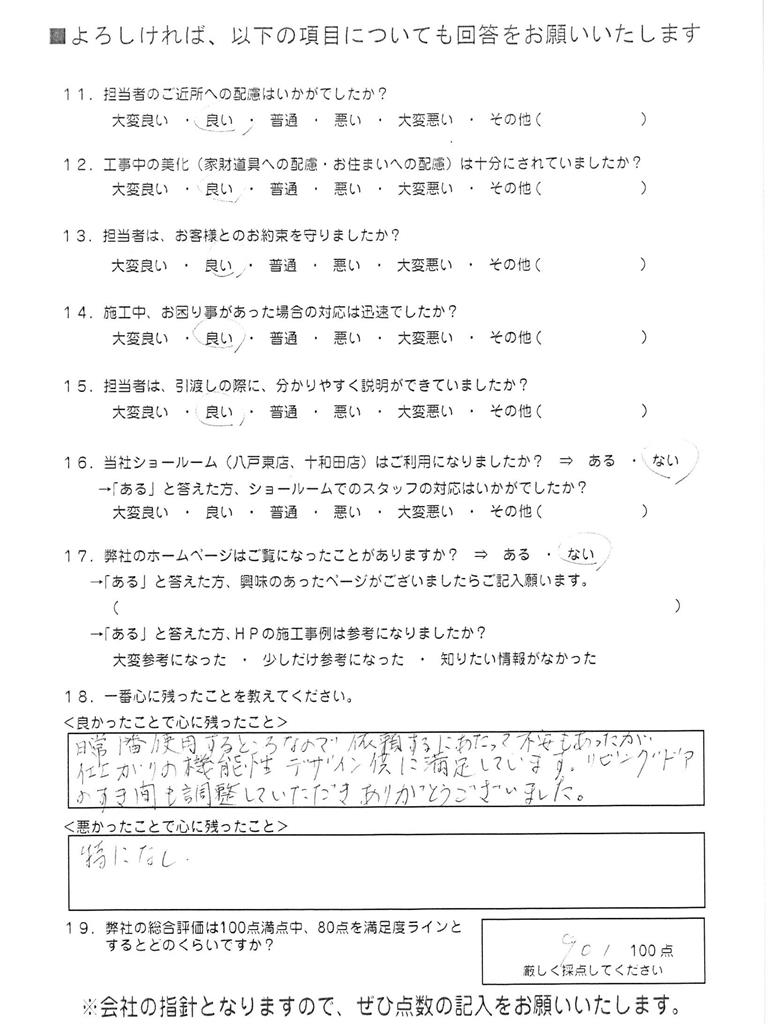 ■よろしければ、以下の項目についても回答をお願いいたします
11．担当者のご近所への配慮はいかがでしたか？
大変良い ・ 良い ・ 普通 ・ 悪い ・ 大変悪い ・ その他（ ）
12．工事中の美化（家財道具への配慮・お住まいへの配慮）は十分にされていましたか？
大変良い ・ 良い ・ 普通 ・ 悪い ・ 大変悪い ・ その他（ ）
13．担当者は、お客様とのお約束を守りましたか？
大変良い ・ 良い ・ 普通 ・ 悪い ・ 大変悪い ・ その他（ ）
14．施工中、お困り事があった場合の対応は迅速でしたか？
大変良い ・ 良い ・ 普通 ・ 悪い ・ 大変悪い ・ その他（ ）
15．担当者は、引渡しの際に、分かりやすく説明ができていましたか？
大変良い ・ 良い ・ 普通 ・ 悪い ・ 大変悪い ・ その他（ ）
16．当社ショールーム（八戸東店、十和田店）はご利用になりましたか？ ⇒ ある ・ ない
→「ある」と答えた方、ショールームでのスタッフの対応はいかがでしたか？
大変良い ・ 良い ・ 普通 ・ 悪い ・ 大変悪い ・ その他（ ）
17．弊社のホームページはご覧になったことがありますか？ ⇒ ある ・ ない
→「ある」と答えた方、興味のあったページがございましたらご記入願います。
（ ）
→「ある」と答えた方、ＨＰの施工事例は参考になりましたか？
大変参考になった ・ 少しだけ参考になった ・ 知りたい情報がなかった
18．一番心に残ったことを教えてください。
＜良かったことで心に残ったこと＞
日常1番使用するところなので 依頼するにあたって不安もあったが
仕上がりの機能性 デザイン供に満足しています。リビングドア
のすき間も調整していただきありがとうございました。
＜悪かったことで心に残ったこと＞
特になし．
19．弊社の総合評価は100点満点中、80点を満足度ラインと
するとどのくらいですか？
90/ 100点
厳しく採点してください
※会社の指針となりますので、ぜひ点数の記入をお願いいたします。